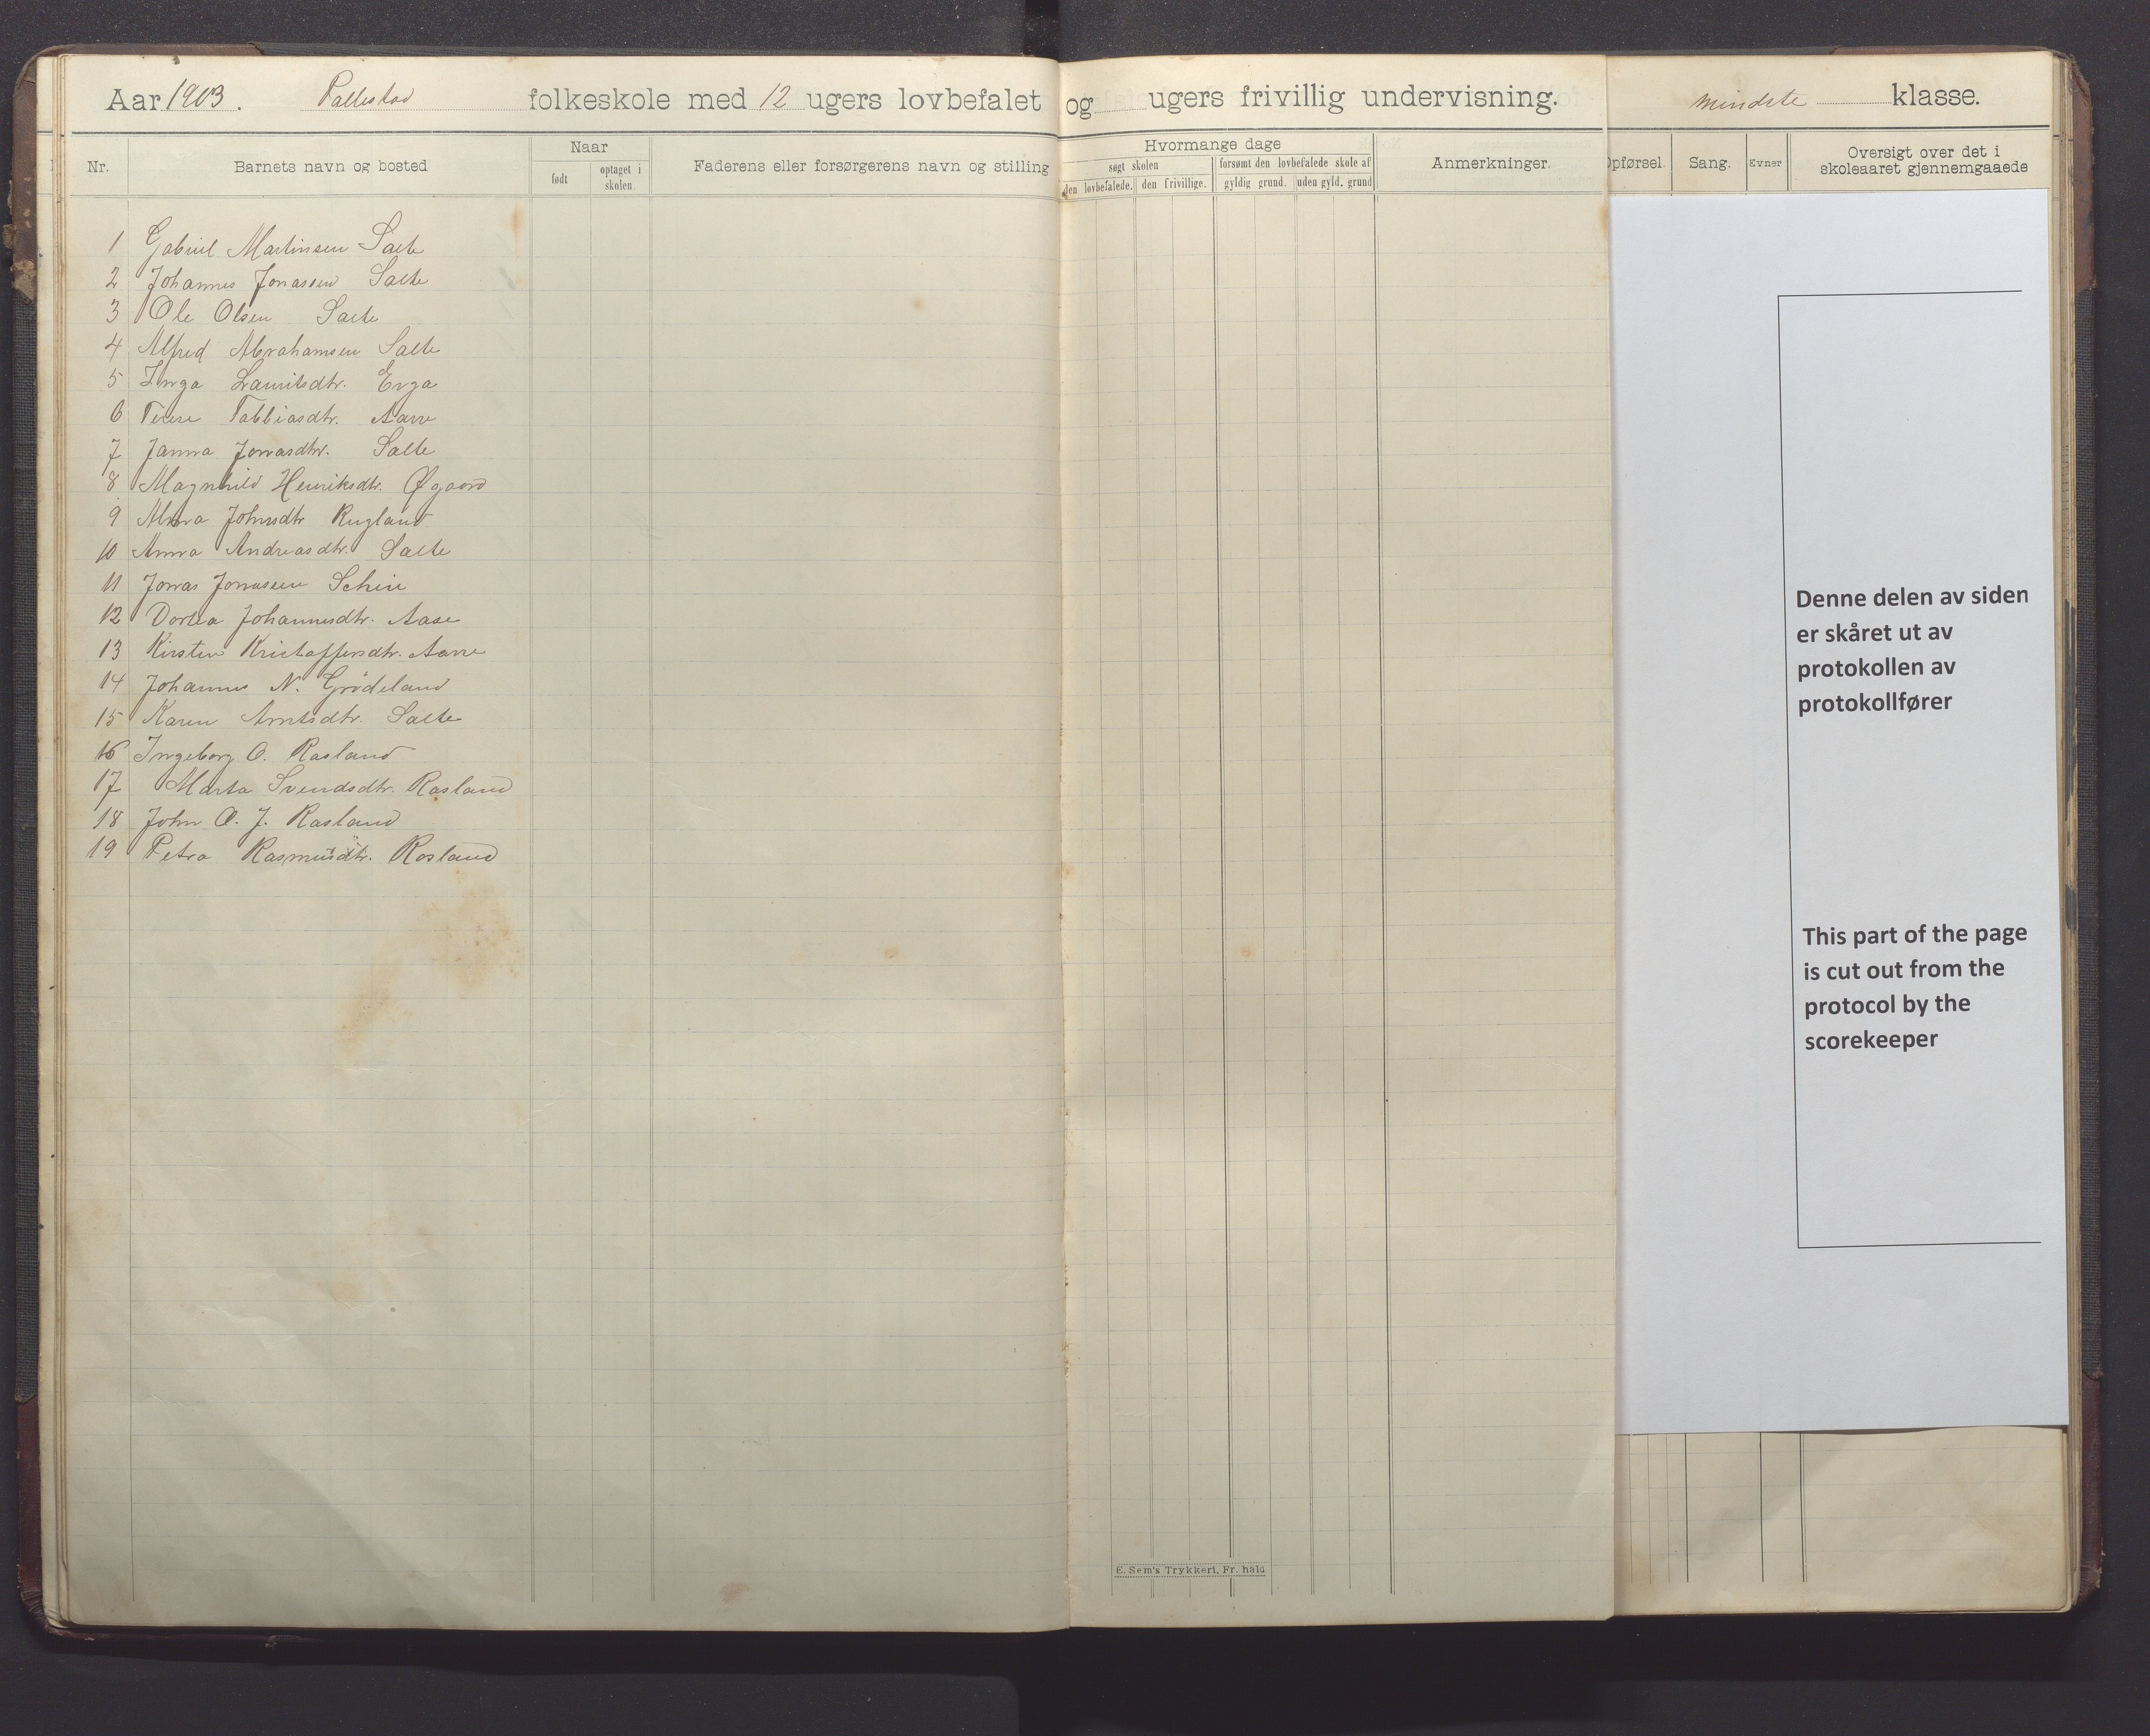 Aar 1903. Pallestad folkeskole med 12 ugers lovbefalet og ugers frivillig undervisning. mindste klasse.
Nr. Barnets navn og bosted Naar født optaget i skolen. Faderens eller forsørgerens navn og stilling Hvormange dage søgt skolen den lovbefalede. den frivillige. forsømt den lovbefalede skole af gyldig grund. uden gyld. grund Anmerkninger. Opførsel. Sang. Evner Oversigt over det i skoleaaret gjennemgaaede
1 Gabriel Martinsen Salte
2 Johannes Jonassen Salte
3 Ole Olsen Salte
4 Alfred Abrahamsen Salte
5 Inga Lauritsdtr. Erga
6 Terese Tobbiasdtr. Aarre
7 Janna Jonasdtr. Salte
8 Magnhild Henriksdtr. Øgaard
9 Johnsdtr Rugland
10 Anna Andreasdtr. Salte
11 Jonas Jonassen
12 Dortea Johannesdtr. Aase
13 Kirsten Kristoffersdtr. Aarre
14 Johannes N. Grødeland
15 Karen Arntsdtr. Salte
16 Ingeborg O. Rasland
17 Marta Svendsdtr. Rasland
18 John O. J. Rasland
19 Petra Rasmusdtr. Rosland
Denne delen av siden
er skåret ut av
protokollen av
protokollfører
This part of the page
is cut out from the
protocol by the
scorekeeper
E. Sem's Trykkeri, Fr. hald